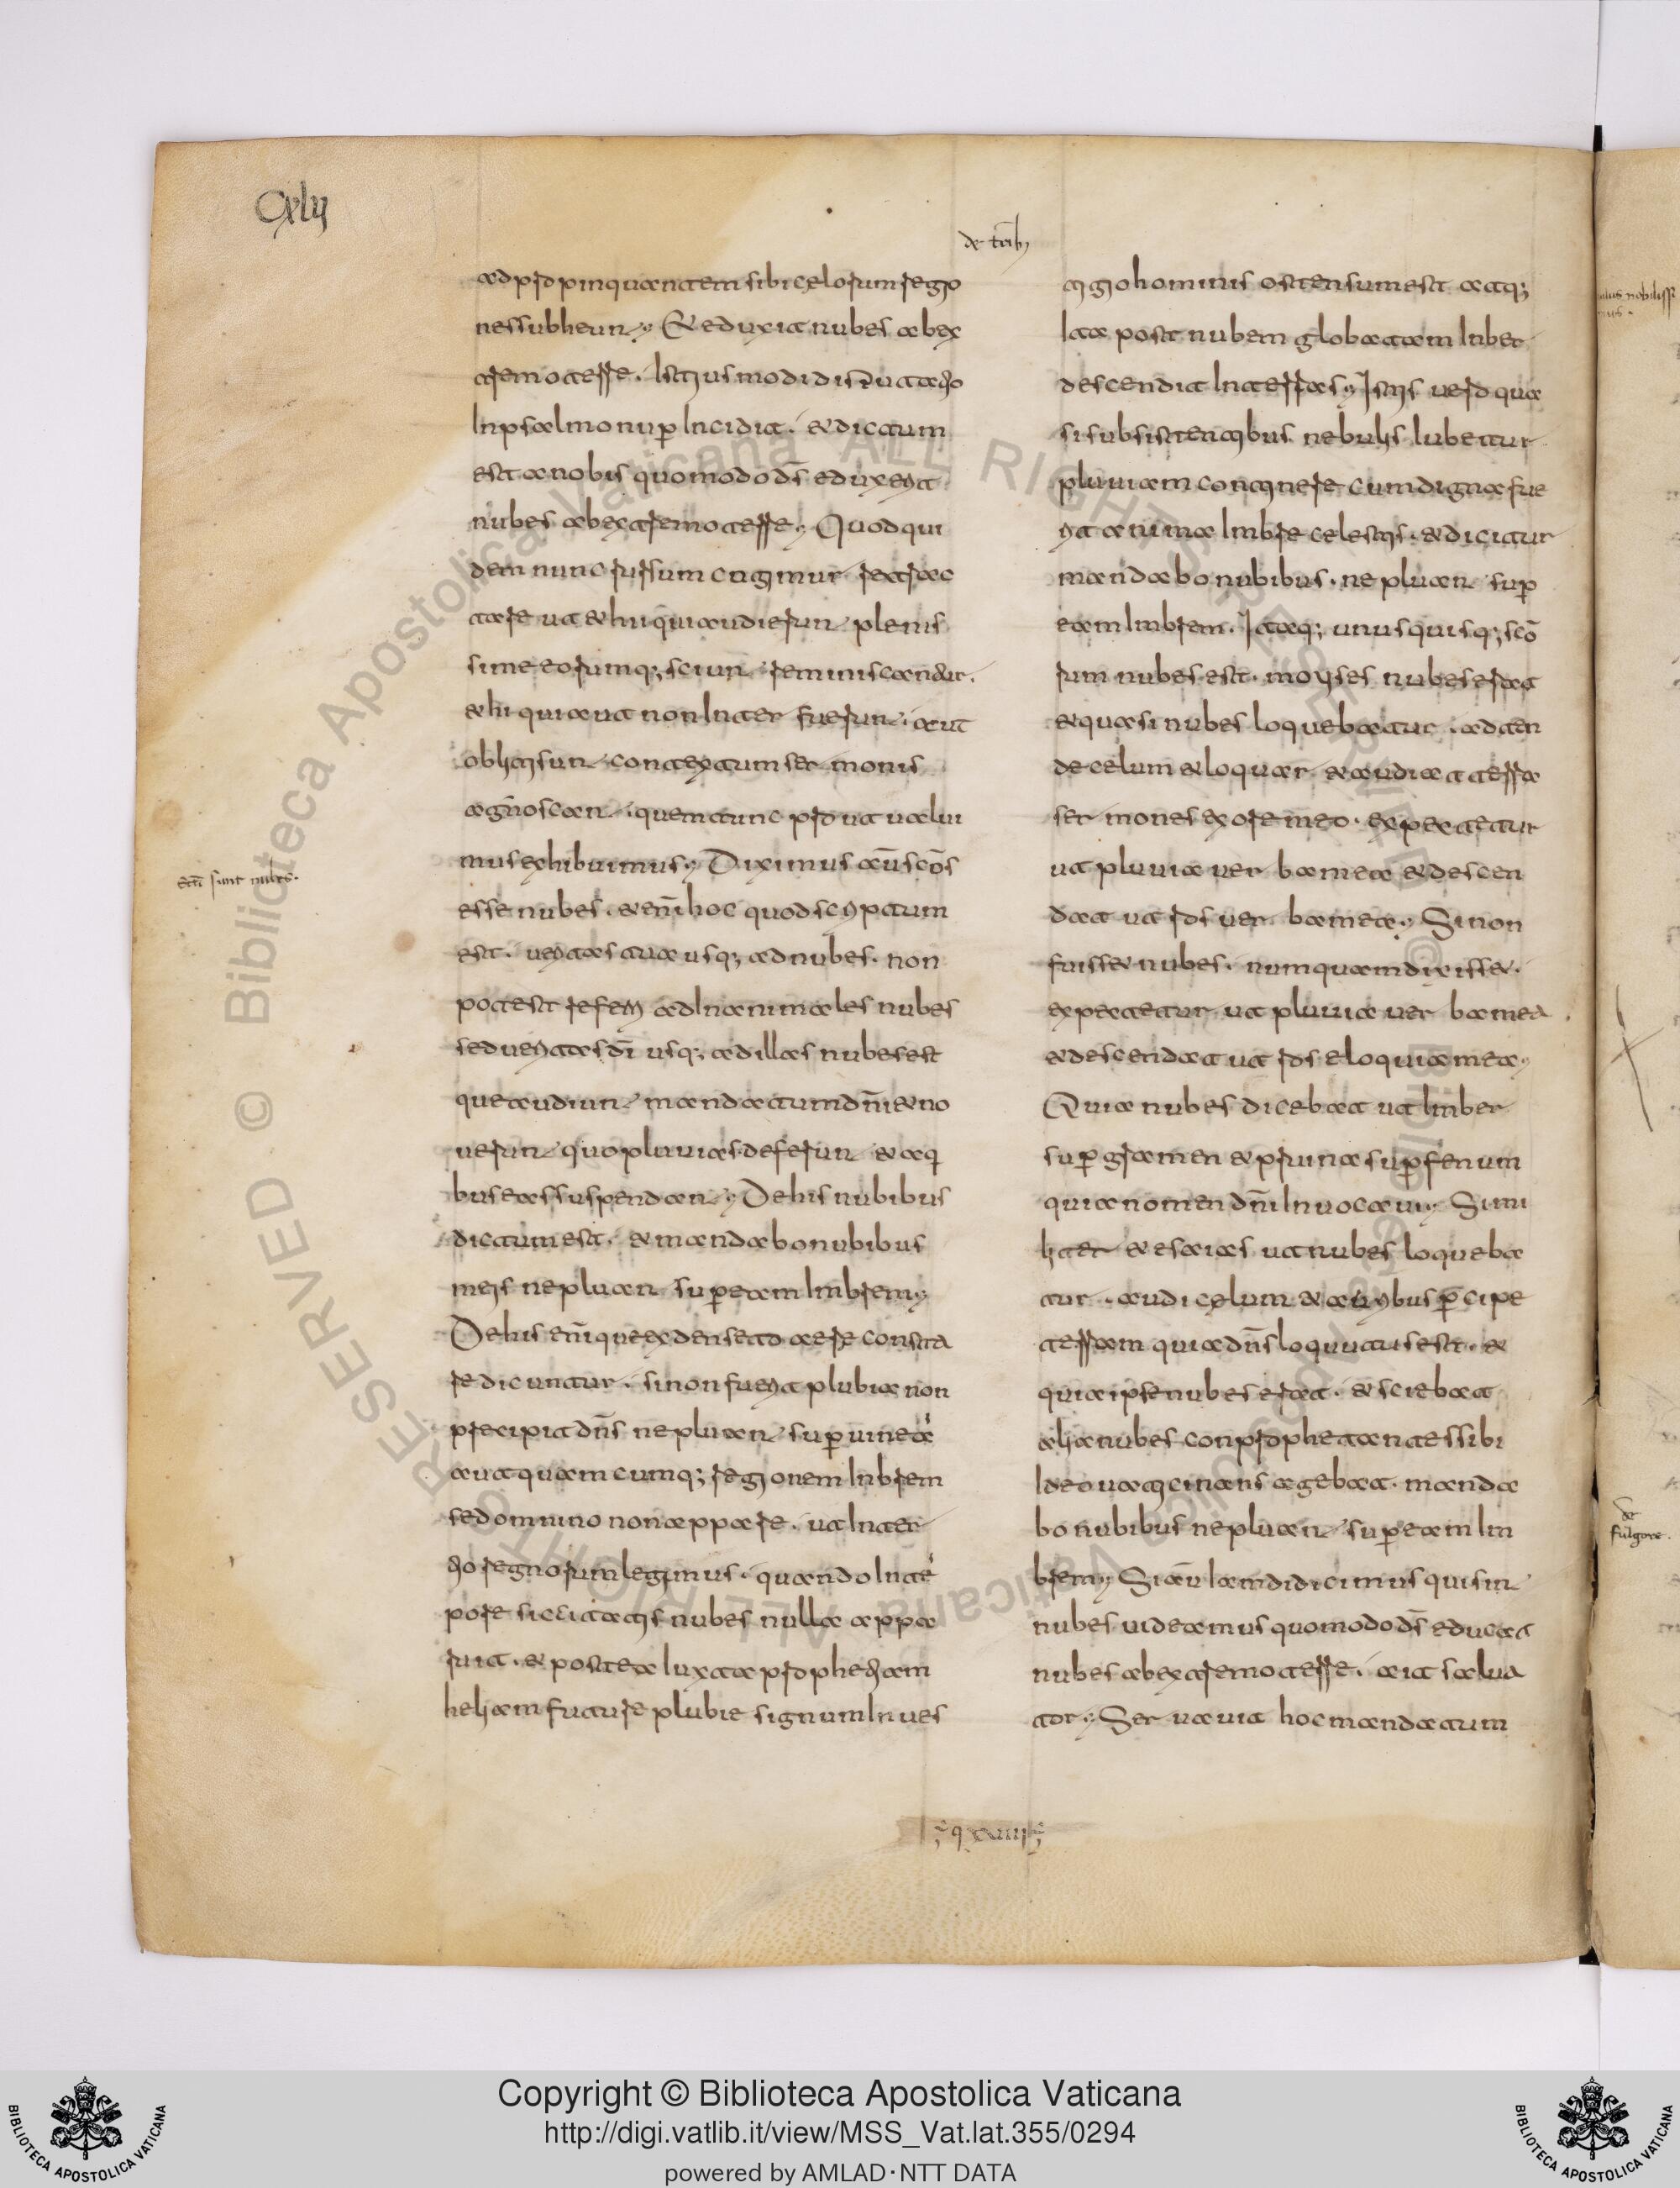 Cxlij
de tribꝫ
adpropinquantem sibi celorum regio
nes subheunt; Et eduxit nubes ab ex
tremo terre. Istiusmodi disputatio
In psalmo nup Incidit. et dictum
est a nobis quomodo ds eduxerit
nubes ab extremo terre; Quod qui
dem nunc rursum cogimur retrac
tare ut et hii qui audierunt plenis
sime eorumq; sciunt reminiscantur.
et hii qui aut non Inter fuerunt. aut
obliti sunt contextum ser monis
agnoscant. quem tunc pro ut ualui
mus exhibuimus; Diximus aūt scōs
esse nubes. et enī hoc quod scriptum
est. ueritas tua usq; ad nubes. non
potest referri ad Inanimales nubes
sed ueritas dī usq; ad illas nubes est
que audiunt mandatum dnī et no
uerunt quo pluuias deferunt et a qi
bus eas suspendant; De his nubibus
dictum est. et mandabo nubibus
meis ne pluant sup eam Imbrem;
De his enī que ex denseto aere consta
re dicuntur. si non fuerit plubia non
precipit dns ne pluant sup uineā
aut quamcumq; regionem Inbrem
sed omnino non appare. ut Inter
tio regnorum legimus. quando In tē
pore siccitatis nubes nulla appa
ruit. et postea Iuxta prophetiam
heliam future plubie signum In ues
tigio hominis ostensum est atq;
Ita post nubem globatam Inber
descendit In terras; Istis uero qua
si subsistentibus nebulis Iubetur
pluuiam continere cum digna fue
rit anima Imbre celestis. et dicitur
mandabo nubibus. ne pluant sup
eam Imbrem. Itaq; unusquisq; scō
rum nubes est. moyses nubes erat
et quasi nubes loquebatur. adten
de celum et loquar. et audiat terra
ser mones ex ore meo. expectetur
ut pluuia uer ba mea et descen
dat ut ros uer ba mea; Si non
fuisset nubes. numquam dixisset.
expectetur ut pluuia uer ba mea
et descendat ut ros eloquia mea;
Quia nubes dicebat ut Imber
sup gramen et pruina sup fenum
quia nomen dnī Inuocaui; Simi
liter et esaias ut nubes loqueba
tur. audi celum et auribus pcipe
terram quia dns loquutus est. et
quia ipse nubes erat. et sciebat
alia nubes conprophetantes sibi
Ideo uaticinans agebat. manda
bo nubibus ne pluant sup eam Im
brem; Si aū Iam didicimus qui sint
nubes uideamus quomodo ds educat
nubes ab extremo terre. ait salua
tor; Ser uauit hoc mandatum
etiā sunt nubes.
q xxuiiii
de
fulgore.
Copyright © Biblioteca Apostolica Vaticana
http://digi.vatlib.it/view/MSS_Vat.lat.355/0294
powered by AMLAD·NTT DATA
BIBLIOTECA APOSTOLICA VATICANA
BIBLIOTECA APOSTOLICA VATICANA